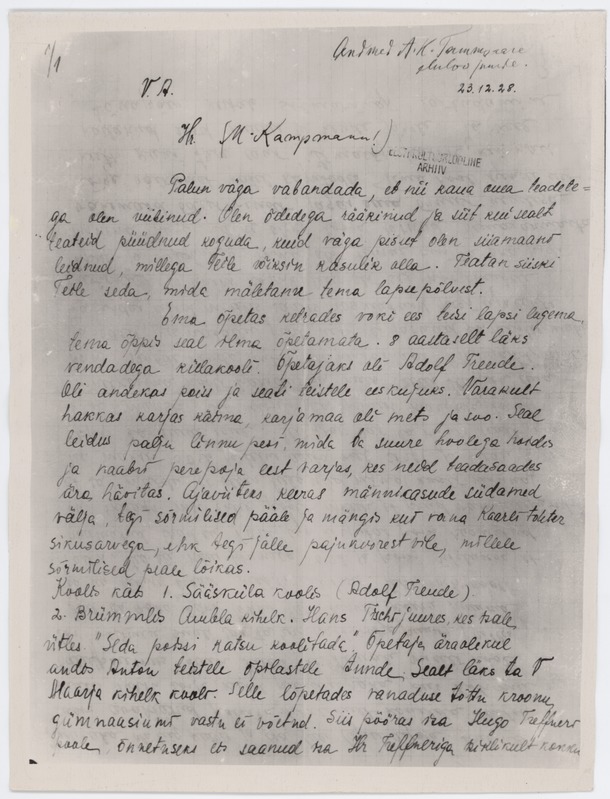 1/1
Andmed A. H. Tammsaare
eluloo juurde.
23.12.28.
V. A.
Hr. (M. Kampmann!)
EESTI KULTUURILOOLINE
ARHIIV
Palun väga vabandada, et nii kaua oma teadete=
ga olen viibinud. Olen õdedega rääkinud ja siit kui sealt
teateid püüdnud koguda, kuid väga pisut olen siiamaani
leidnud, millega Teile võiksin kasulik olla. Teatan siiski
Teile seda, mida mäletame tema lapsepõlvest.
Ema õpetas kedrades voki ees teisi lapsi lugema,
tema õppis seal ilma õpetamata. 8 aastaselt läks
vendadega külakooli. Õpetajaks oli Adolf Treude.
Oli andekas poiss ja seati teistele eeskujuks. Varakult
hakkas karjas käima, karjamaa oli mets ja soo. Seal
leidus palju linnu pesi, mida ta suure hoolega hoidis
ja naabri perepoja eest varjas, kes neid teadasaades
ära hävitas. Ajaviiteks keeras männikasude südamed
välja, tegi sõrmilised pääle ja mängis kui vana Kaarli
sikusarvega, ehk tegi jälle pajukoorest vile, millele
sõrmilised peale lõikas.
Koolis käis 1. Sääsküla koolis (Adolf Treude).
2. Brümmlis Ambla kihelk. Hans juures, kes isale
ütles "Seda poissi katsu koolitada". Õpetaja äraolekul
andis Anton teistele õpilastele tunde. Sealt läks ta V
Maarja kihelk kooli. Selle lõpetades vanaduse tõttu kroonu
gümnaasiumi vastu ei võetud. Siis pööras isa Hugo Treffneri
poole, õnnetuseks ei saanud isa Hr Treffneriga isiklikult kokku